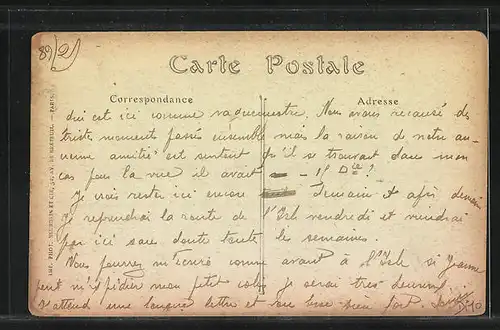 89 2
Carte Postale
Correspondance
Adresse
qui est ici comme vaguemestre. Nous avons recausé des
tristes moments passés ensemble mais la raison de notre an-
cienne amitié est surtout qu'il se trouvait dans mon
cas pour la vie il avait - 18 Dre ?
Je vais rester ici encore demain et après demain
je reprendrai la route de l'Isle vendredi et viendrai
par ici sans doute toutes les semaines.
Vous pourrez m'écrire comme avant à l'Isle si Jeanne
peut m'expédier mon petit colis je serai très
J'attend une longue lettre et une bise bien fort.
IMP. PHOT. PARIS